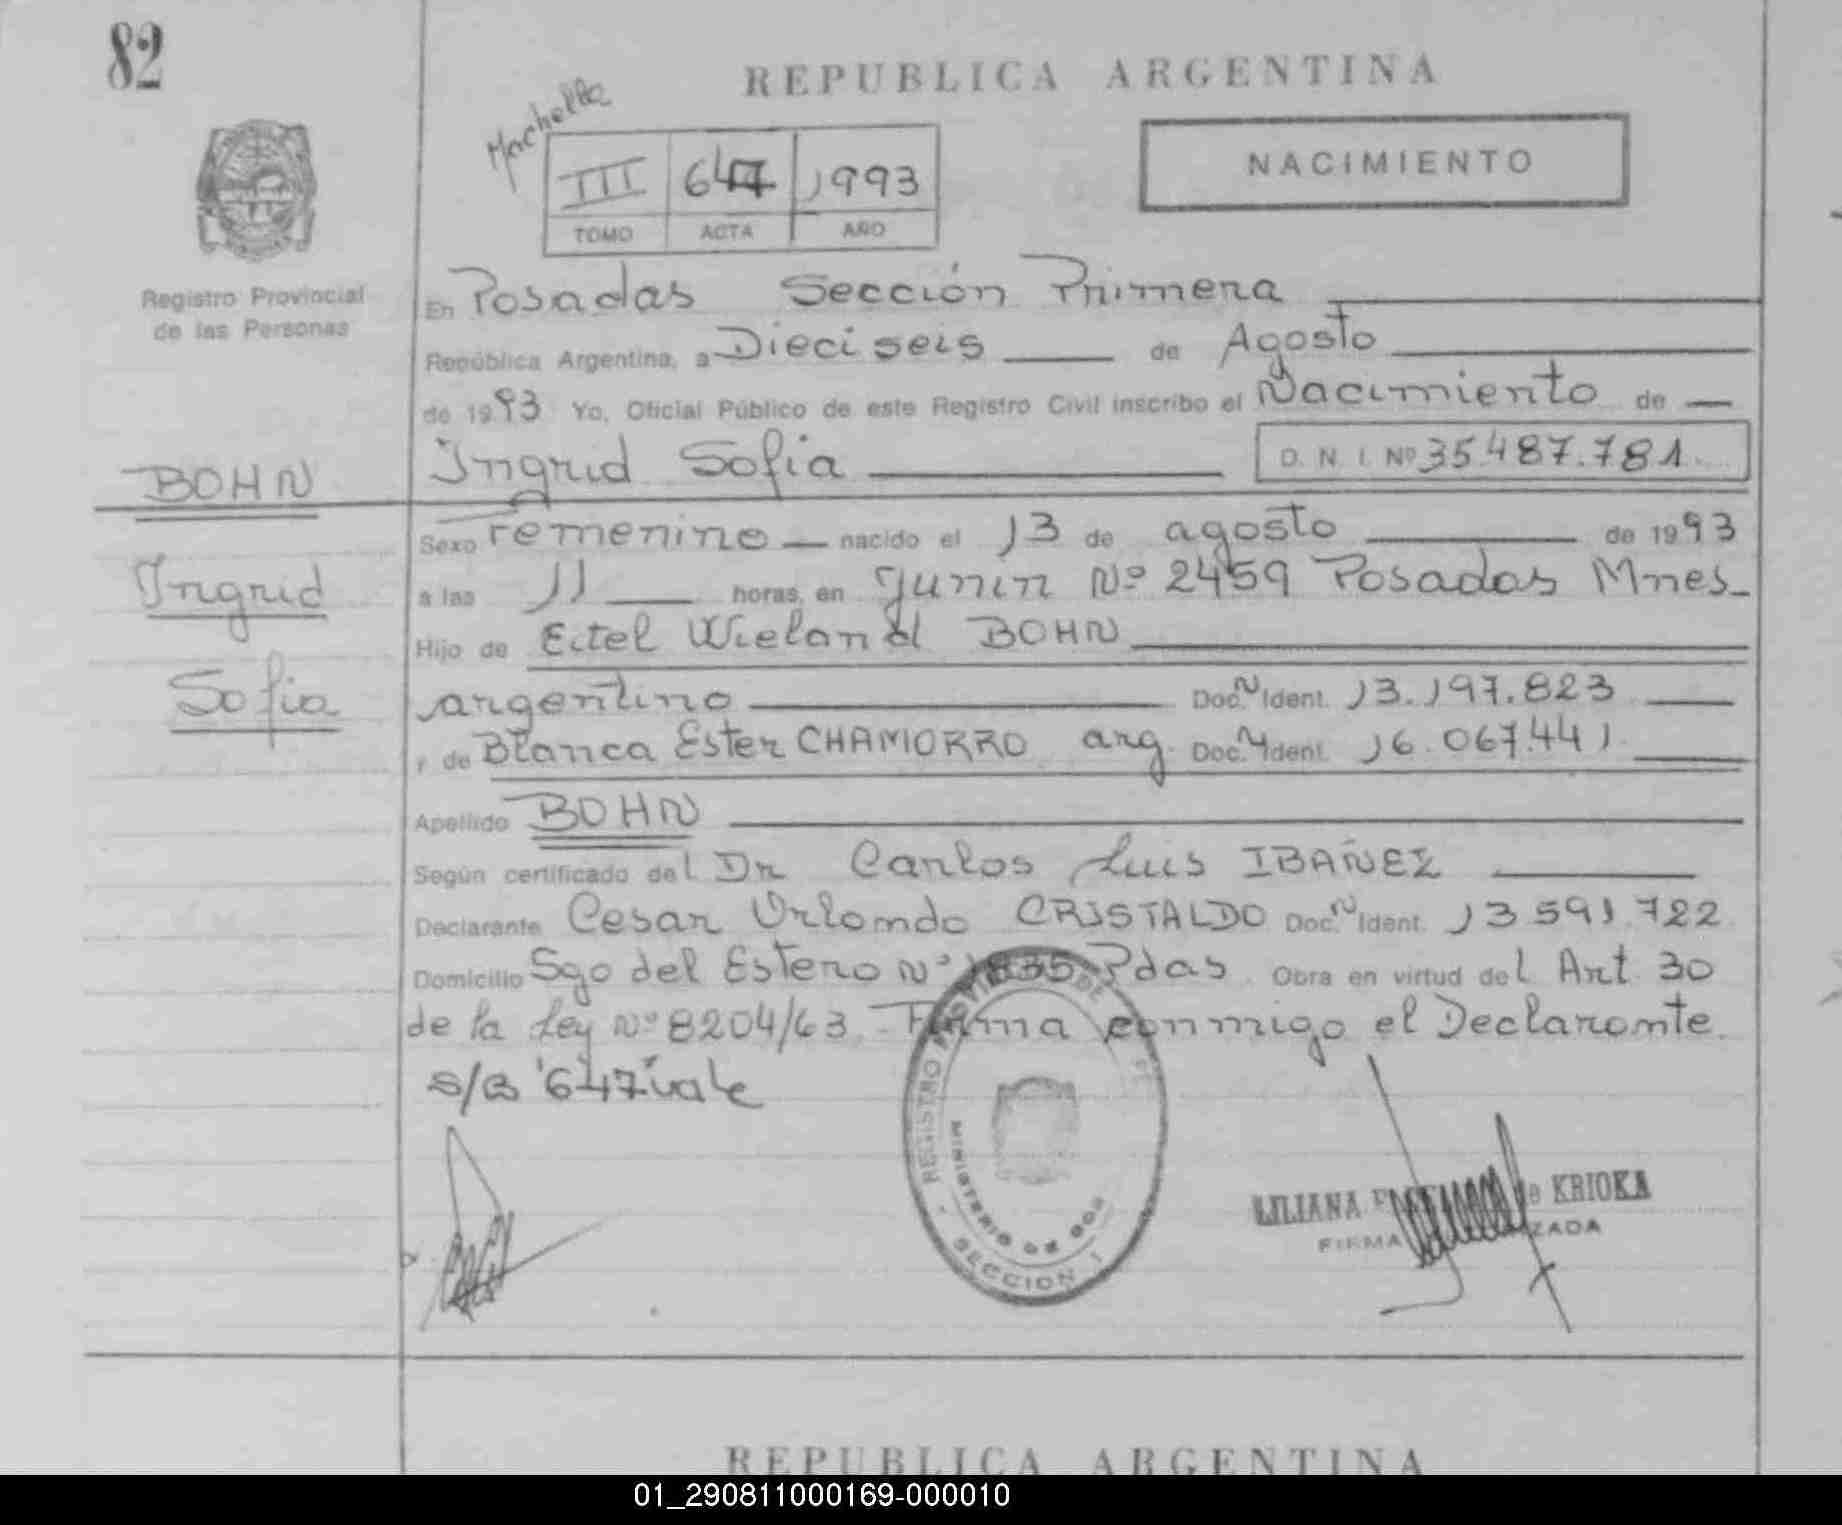 82
REPUBLICA ARGENTINA
III 647 1993
NACIMIENTO
TOMO ACTA AÑO
Registro Provincial
de las Personas
En Posadas Sección Primera
República Argentina, a Dieciseis de Agosto
de 1993 Yo, Oficial Público de este Registro Civil inscribo el Nacimiento de
BOHN
Ingrid Sofia D. N. I. Nº 35.487.781.
Ingrid
Sofia
Sexo Femenino nacido el 13 de agosto de 1993
a las 11 horas, en Junin Nº 2459 Posadas Mnes
Hijo de Eitel Wieland BOHN
argentino Doc. N Ident. 13.197.823
y de Blanca Ester CHAMORRO arg. Doc. N Ident. 16.067.441
Apellido BOHN
Según certificado del Dr Carlos Luis IBAÑEZ
Declarante Cesar Orlando CRISTALDO Doc. N Ident. 13.591.722
Domicilio Sgo del Estero Nº 1835 Pdas. Obra en virtud del Art 30
de la Ley Nº 8204/63. Firma conmigo el Declarante.
S/B "647" vale
REGISTRO DE
MINISTERIO DE GOB
SECCION 1
LILIANA KRIOKA
FIRMA
REPUBLICA ARGENTINA
01_290811000169-000010